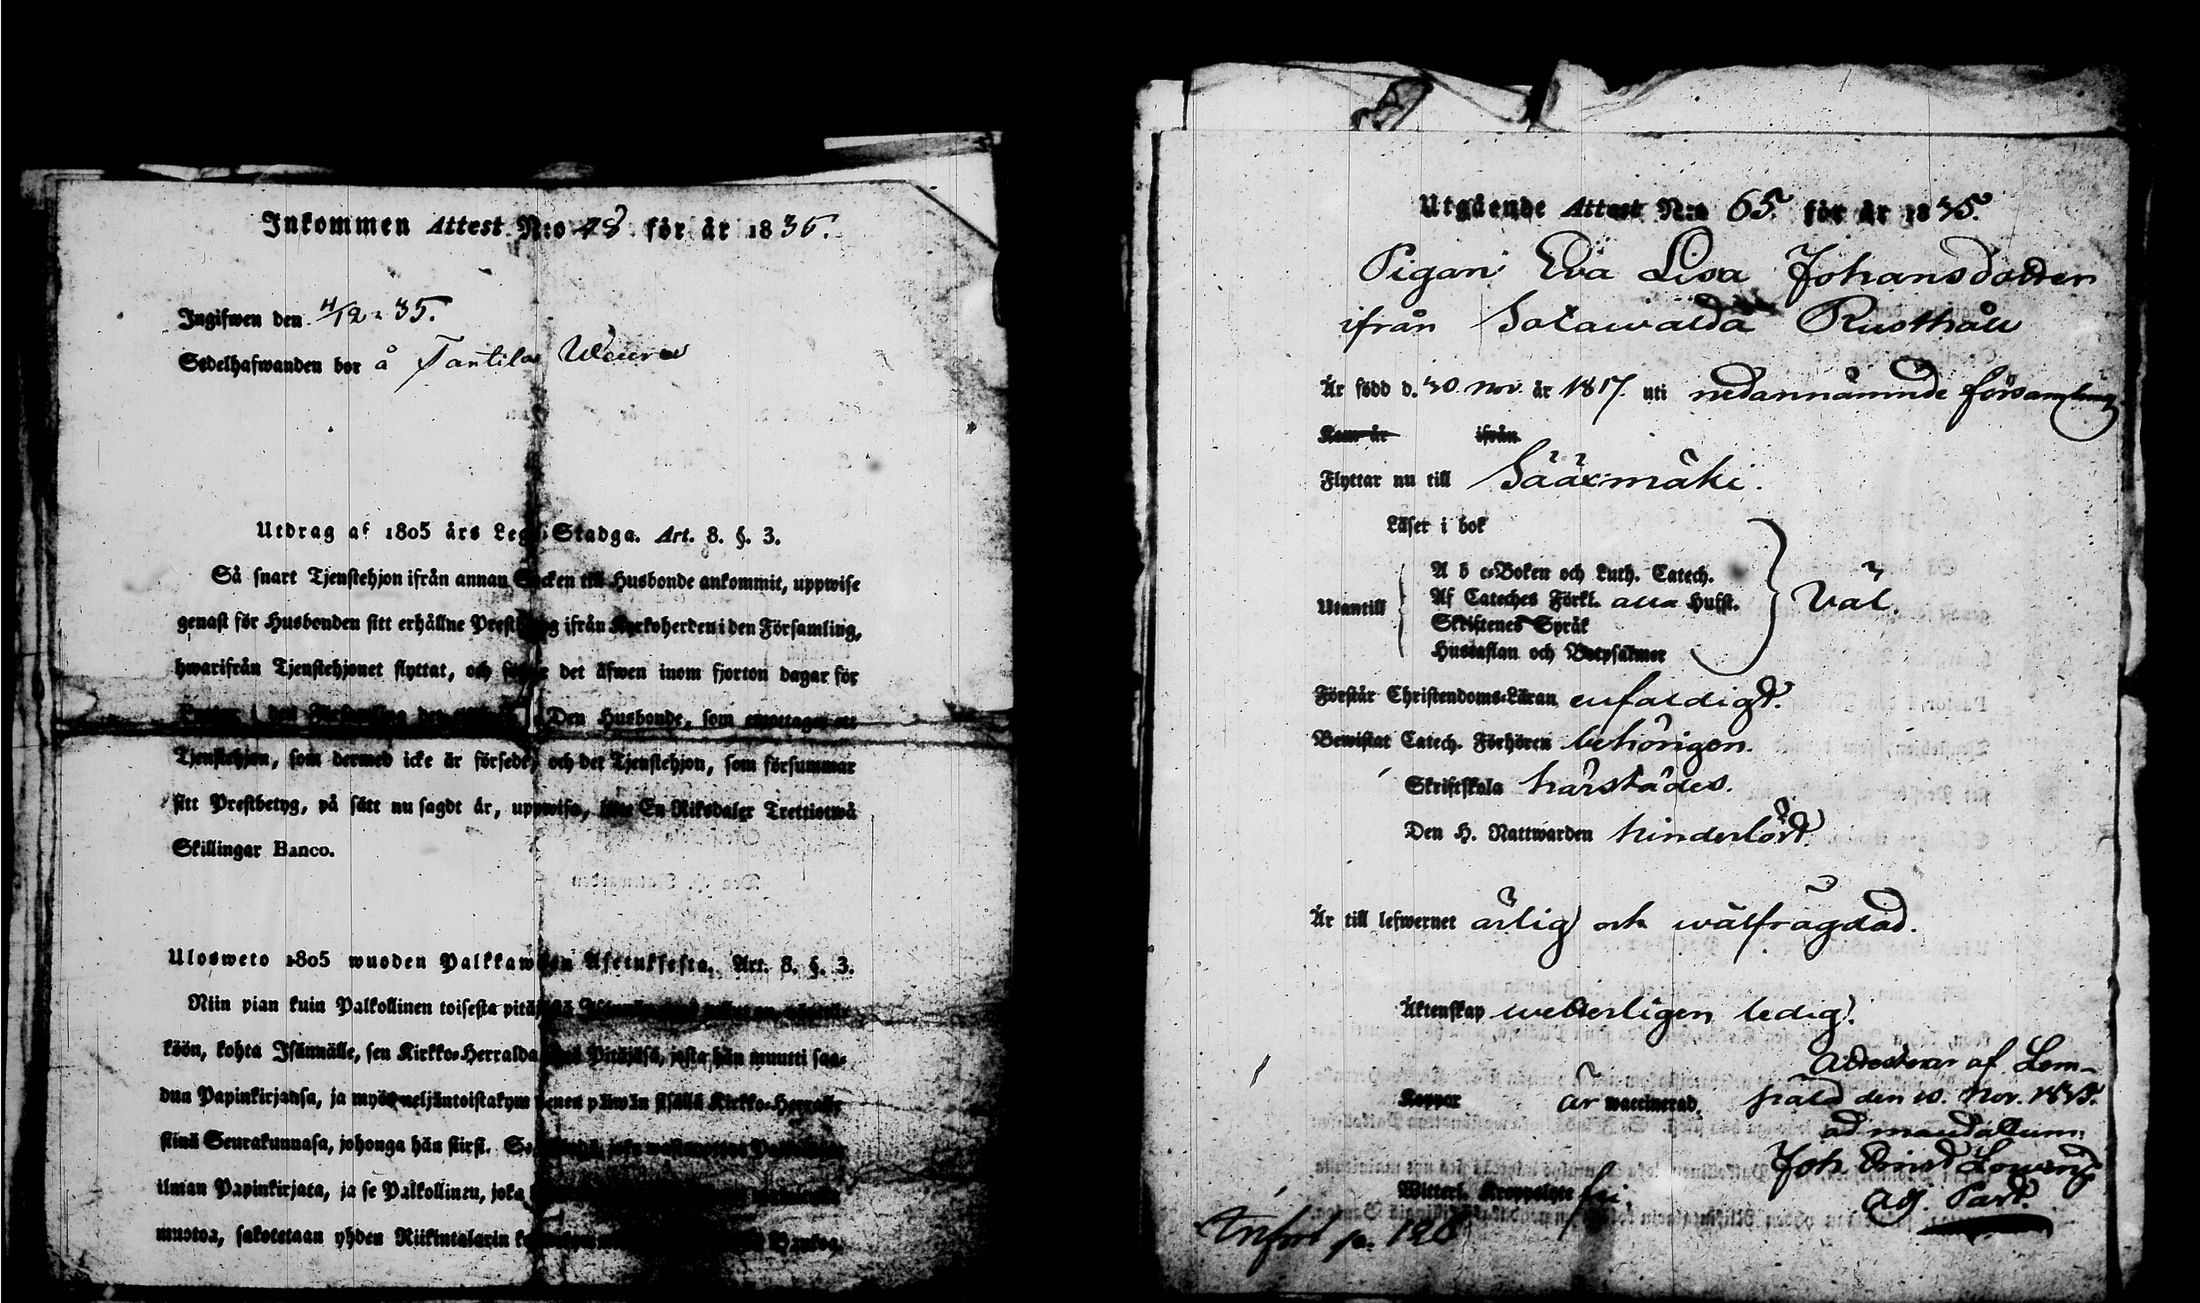 Inkommen Attest N:o 48. för år 1835.
Ingifwen den 4/12 35.
Sedelhafwanden bor å Tantila
Utdrag af 1805 års Lego-Stadga. Art. 8. §. 3.
Så snart Tjenstehjon ifrån annan Socken till Husbonde ankommit, uppwise
genast för Husbonden sitt erhållne Prestbetyg ifrån Kyrkoherden i den Församling,
hwarifrån Tjenstehjonet flyttat, och det äfwen inom fjorton dagar för
Den Husbonde, som emottager ett
Tjenstehjon, som dermed icke är försedt, och det Tjenstehjon, som försummar
sitt Prestbetyg, på sätt nu sagdt är, uppwisa, böte En Riksdaler Trettiotwå
Skillingar Banco.
Ulosweto 1805 wuoden Palkkawäen Asetuksesta. Art. 8. §. 3.
Niin pian kuin Palkollinen toisesta pitäjästä
köön, kohta Isännälle, sen Kirkko-Herralda Pitäjäsä, josta hän muutti saa-
dun Papinkirjansa, ja myös neljäntoistakymmenen päiwän sisällä Kirkko-Herralle
siinä Seurakunnasa, johonga hän siirst.
ilman Papinkirjata, ja se Palkollinen, joka
muotoa, sakotetaan yhden Riikintalarin Bankoa.
Utgående Attest N:o 65. för år 1835.
Pigan Eva Lisa Johansdotter
ifrån Rusthåll
Är född d. 30 nov. är 1817. uti nedannämnde församling
Kom år ifrån
Flyttar nu till Sääxmäki.
Läser i bok
A b c-Boken och Luth. Catech.
Utantill Af Cateches Förkl. alla Hufst. Väl.
Skriftenes Språk
Hustaflan och Botpsalmer
Förstår Christendoms-Läran enfaldigt.
Bewistat Catech. Förhören behörigen.
Skriftskola härstädes.
Den H. Nattwarden hinderlöst.
Är till lefwernet ärlig och wälfrägdad.
Äktenskap wetterligen ledig.
Attesterar af Lem-
Koppor är waccinerad. pälä den 10. Nov. 1835.
ad mandatum.
Joh.
Witterl. Kroppslyte fri Adj. Past.
Infört p. 120